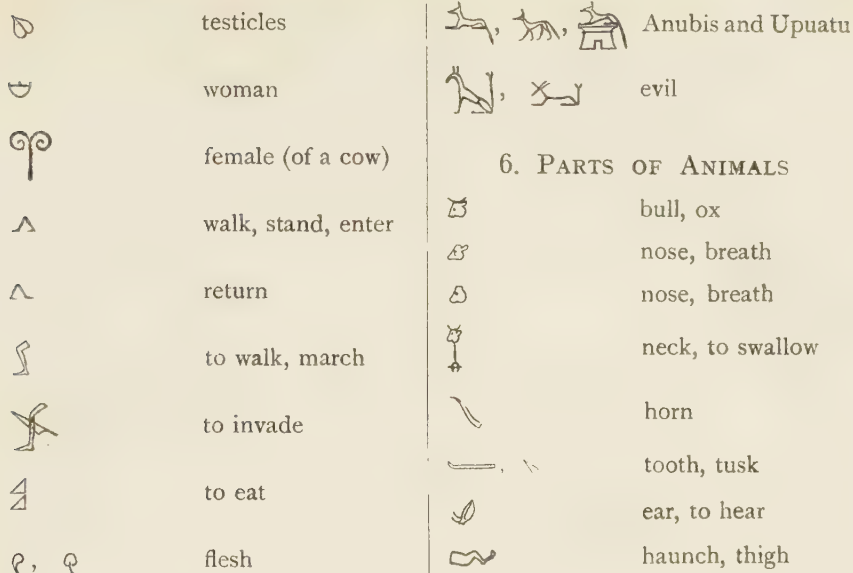 testicles
woman
female (of a cow)
walk, stand, enter
return
to walk, march
to invade
to eat
flesh
Anubis and Upuatu
evil
6. PARTS OF ANIMALS
bull, ox
nose, breath
nose, breath
neck, to swallow
horn
tooth, tusk
ear, to hear
haunch, thigh